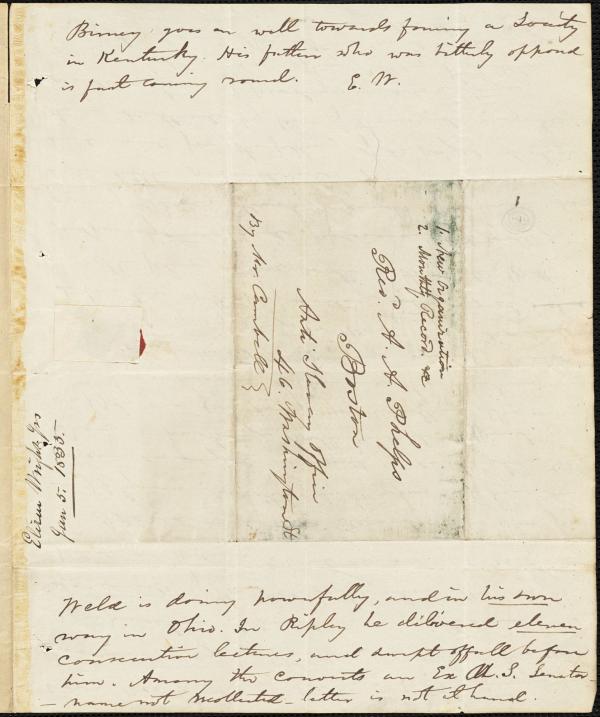 Birney goes on well towards forming a Society
in Kentucky. His father who was bitterly opposed
is fast coming round. E. W.
1. New Organization
2. Monthly Record. &c
Rev.d A. A. Phelps
Boston
Anti Slavery Office
46. Washington St
By Mr Cambell
Elizur Wright, Jr
Jan 5. 1835.
Weld is doing powerfully, and in his own
way in Ohio. In Ripley he delivered eleven
consecutive lectures, and swept off all before
him. Among the converts an Ex U. S. Senator
- name not recollected - letter is not at hand.